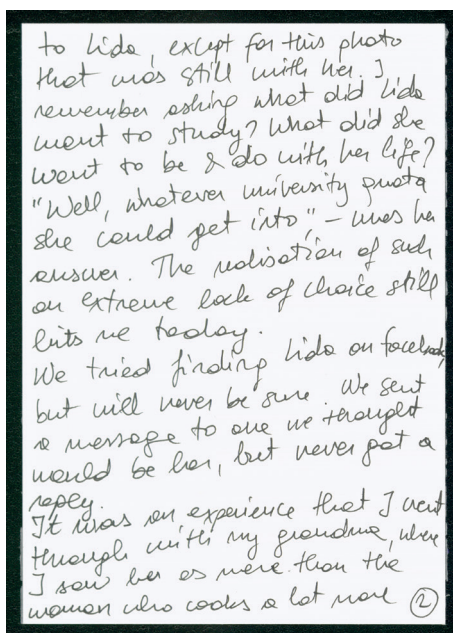 to Lida, except for this photo
that was still with her. I
remember asking what did Lida
want to study? What did she
want to be & do with her life?
"Well, whatever university quota
she could get into", – was her
answer. The realisation of such
an extreme lack of choice still
hits me today.
We tried finding Lida on facebook,
but will never be sure. We sent
a message to one we thought
would be her, but never got a
reply.
It was an experience that I went
through with my grandma, where
I saw her as more than the
woman who cooks a lot more
2